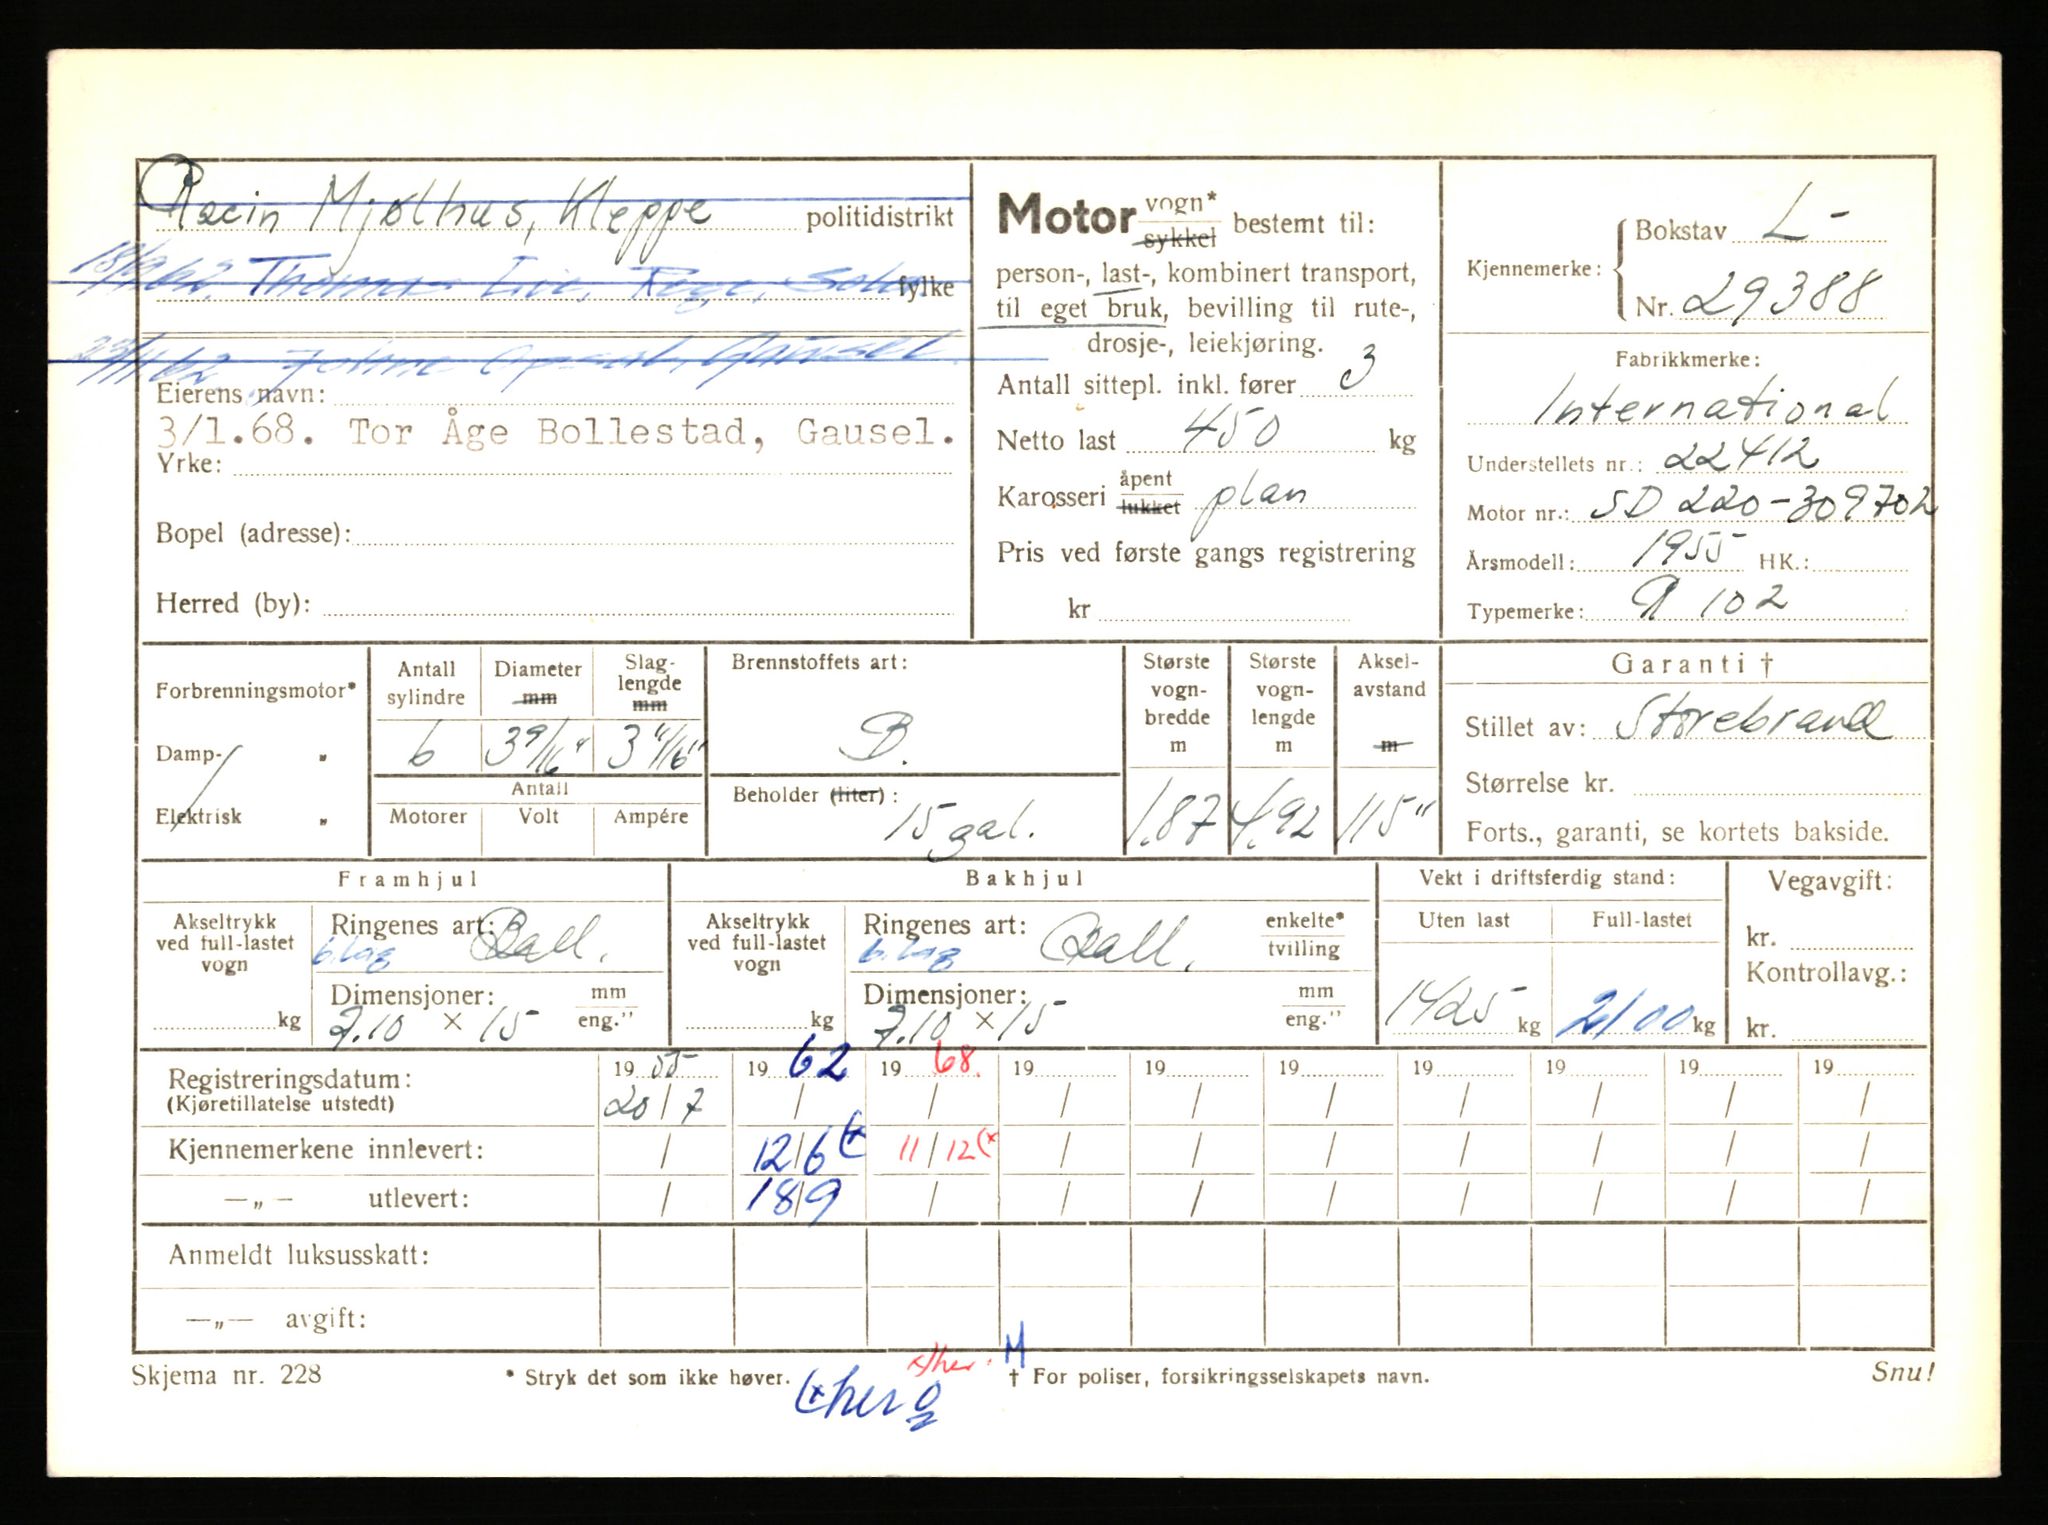 Mjølhus, Kleppe politidistrikt
18/9 62. Thomas Lie, Rege, Sola fylke
23/11 62 Gausel
Eierens navn:
3/1.68. Tor Åge Bollestad, Gausel.
Yrke:
Bopel (adresse):
Herred (by):
Motor vogn* / sykkel bestemt til:
person-, last-, kombinert transport,
til eget bruk, bevilling til rute-,
drosje-, leiekjøring.
Antall sittepl. inkl. fører 3
Netto last 450 kg
Karosseri åpent / lukket plan
Pris ved første gangs registrering
kr
Kjennemerke: Bokstav L-
Nr. 29388
Fabrikkmerke:
International
Understellets nr.: 22412
Motor nr.: SD 220-309702
Årsmodell: 1955 HK.:
Typemerke: R 102
Forbrenningsmotor*
Damp- „
Elektrisk „
Antall sylindre 6
Diameter mm 3 9/16"
Slag-lengde mm 3 11/16"
Antall
Motorer Volt Ampére
Brennstoffets art:
B.
Beholder (liter):
15 gal.
Største vogn-bredde m 1.87
Største vogn-lengde m 4.92
Aksel-avstand m 115"
Garanti †
Stillet av: Storebrand
Størrelse kr.
Forts., garanti, se kortets bakside.
Framhjul
Akseltrykk ved full-lastet vogn
kg
Ringenes art: Ball.
6.lag
Dimensjoner: mm / eng."
7.10 x 15
Bakhjul
Akseltrykk ved full-lastet vogn
kg
Ringenes art: Ball. enkelte* / tvilling
6.lag
Dimensjoner: mm / eng."
7.10 x 15
Vekt i driftsferdig stand:
Uten last Full-lastet
1425 kg 2100 kg
Vegavgift:
kr.
Kontrollavg.:
kr.
Registreringsdatum: 19 55 19 62 19 68. 19 19 19 19 19 19 19
(Kjøretillatelse utstedt) 20/7 / / / / / / / / /
Kjennemerkene innlevert: / 12/6 (x 11/12 (x / / / / / / /
—„— utlevert: / 18/9 / / / / / / / /
Anmeldt luksusskatt:
—„— avgift:
Skjema nr. 228
* Stryk det som ikke høver.
(x her
x/her. M
† For poliser, forsikringsselskapets navn.
Snu!